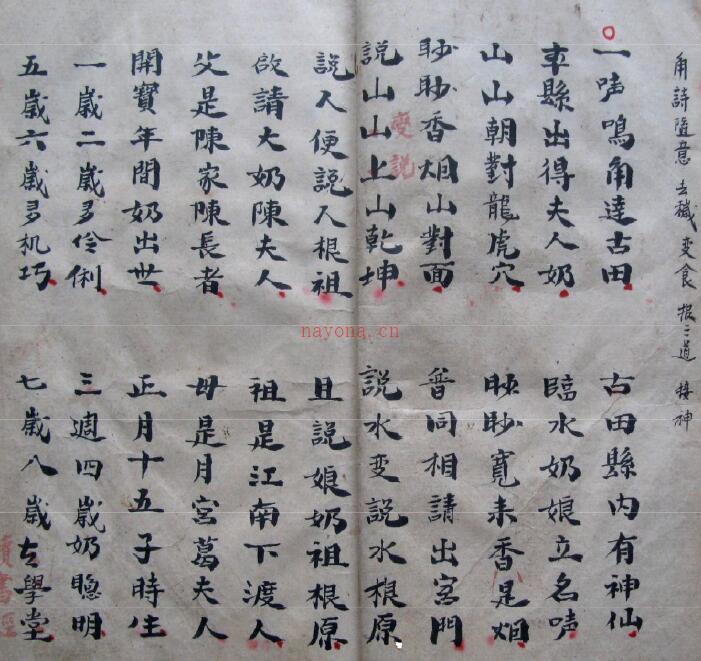 角詩隨意 去穢 变食 道 接神
一声鳴角達古田 古田縣内有神仙
本縣出得夫人奶 臨水奶娘立名声
山山朝對龍虎穴 眇寬来香是烟
眇眇香烟山對面 普同相請出宮門
説山山上山乾坤 説水变説水根原
变説
説人便説人根祖 且説娘奶祖根原
啟請大奶陳夫人 祖是江南下渡人
父是陳家陳長者 母是月宮葛夫人
開寶年間奶出世 正月十五子時生
一歲二歲多伶俐 三週四歲奶聰明
五歲六歲多机巧 七歲八歲去學堂
讀書經
nayona.cn